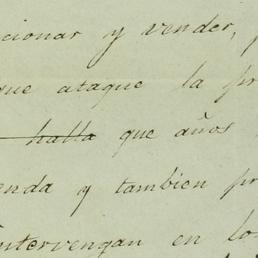 cionar y vender, p
que ataque la pr
halla que años
enda y tambien pr
intervengan en lo